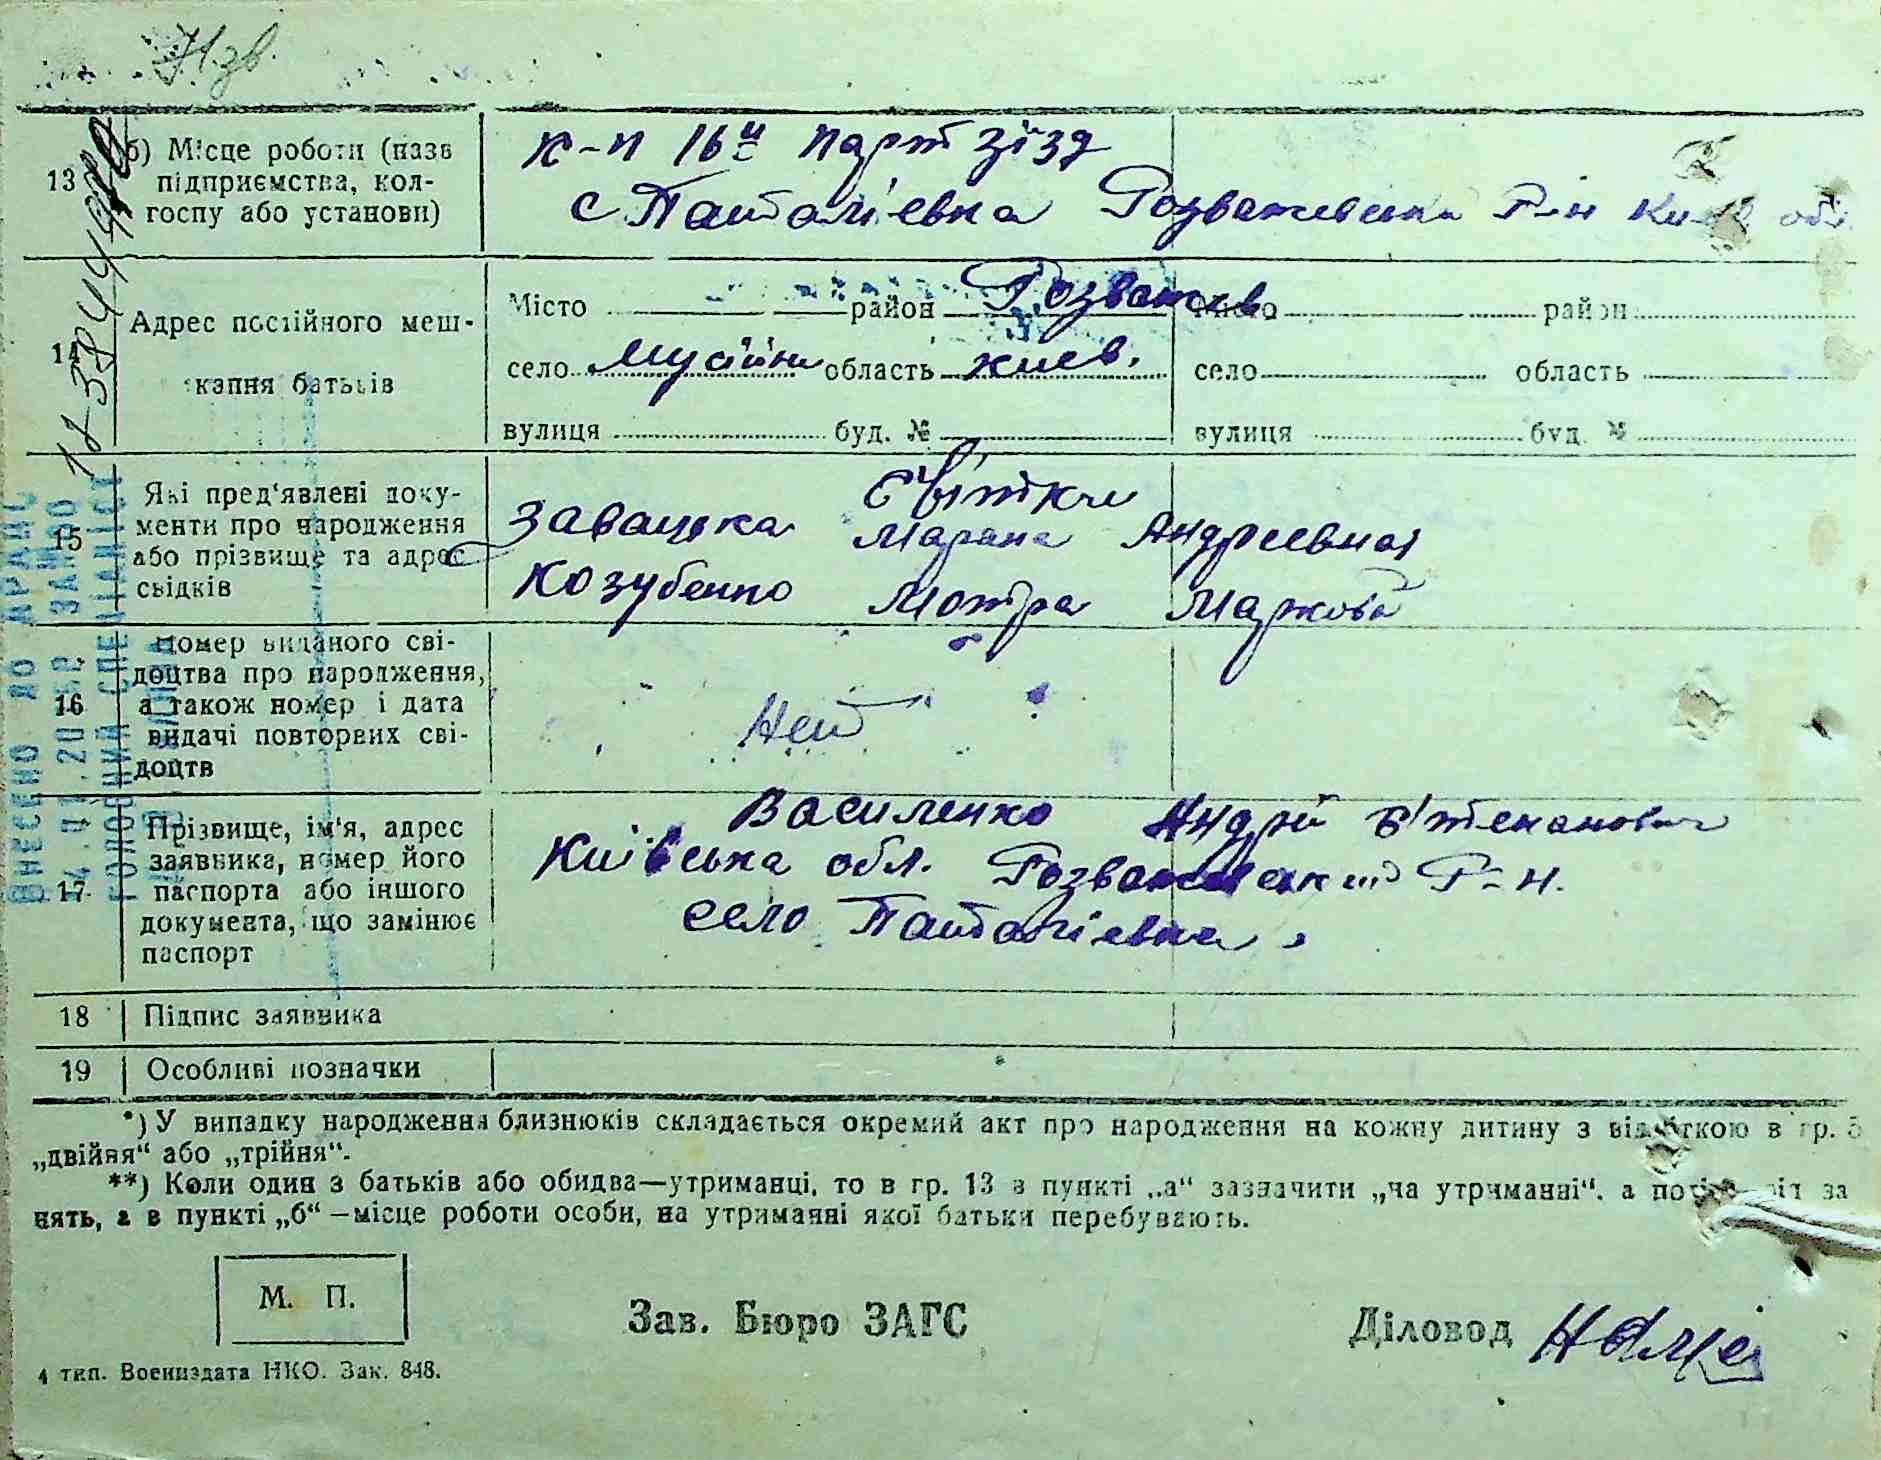 13
б) Місце роботи (назв
підприємства, кол-
госпу або установи)
к-п 16й парт зїзд
с Панталіевка Розважевська Р-н Київ обл.
14
Адрес постійного меш-
кання батьків
Місто район Розважев. Місто район
село Мусійки область Киев. село область
вулиця буд. № вулиця буд. №
15
Які пред'явлені доку-
менти про народження
або прізвище та адрес
свідків
Свідтки
Завацька Марина Андреевная
Козубенко Мотра Маркова
16
Номер виданого сві-
доцтва про народження,
а також номер і дата
видачі повторних сві-
доцтв
Нет
17
Прізвище, ім'я, адрес
заявника, номер його
паспорта або іншого
документа, що замінює
паспорт
Василенко Андрій
Київська обл. Розважевский Р-н.
село Панталіевка.
18 Підпис заявника
19 Особливі позначки
*) У випадку народження близнюків складається окремий акт про народження на кожну дитину з відміткою в гр. 5
„двійня“ або „трійня“.
**) Коли один з батьків або обидва—утриманці, то в гр. 13 в пункті „а“ зазначити „на утриманні“, а потім рід за
нять, а в пункті „б“ —місце роботи особи, на утриманні якої батьки перебувають.
М. П.
Зав. Бюро ЗАГС
Діловод
4 тип. Воениздата НКО. Зак. 848.
ВНЕСЕНО ДО ДРАЦС
ГОЛОВНИЙ СПЕЦІАЛІСТ